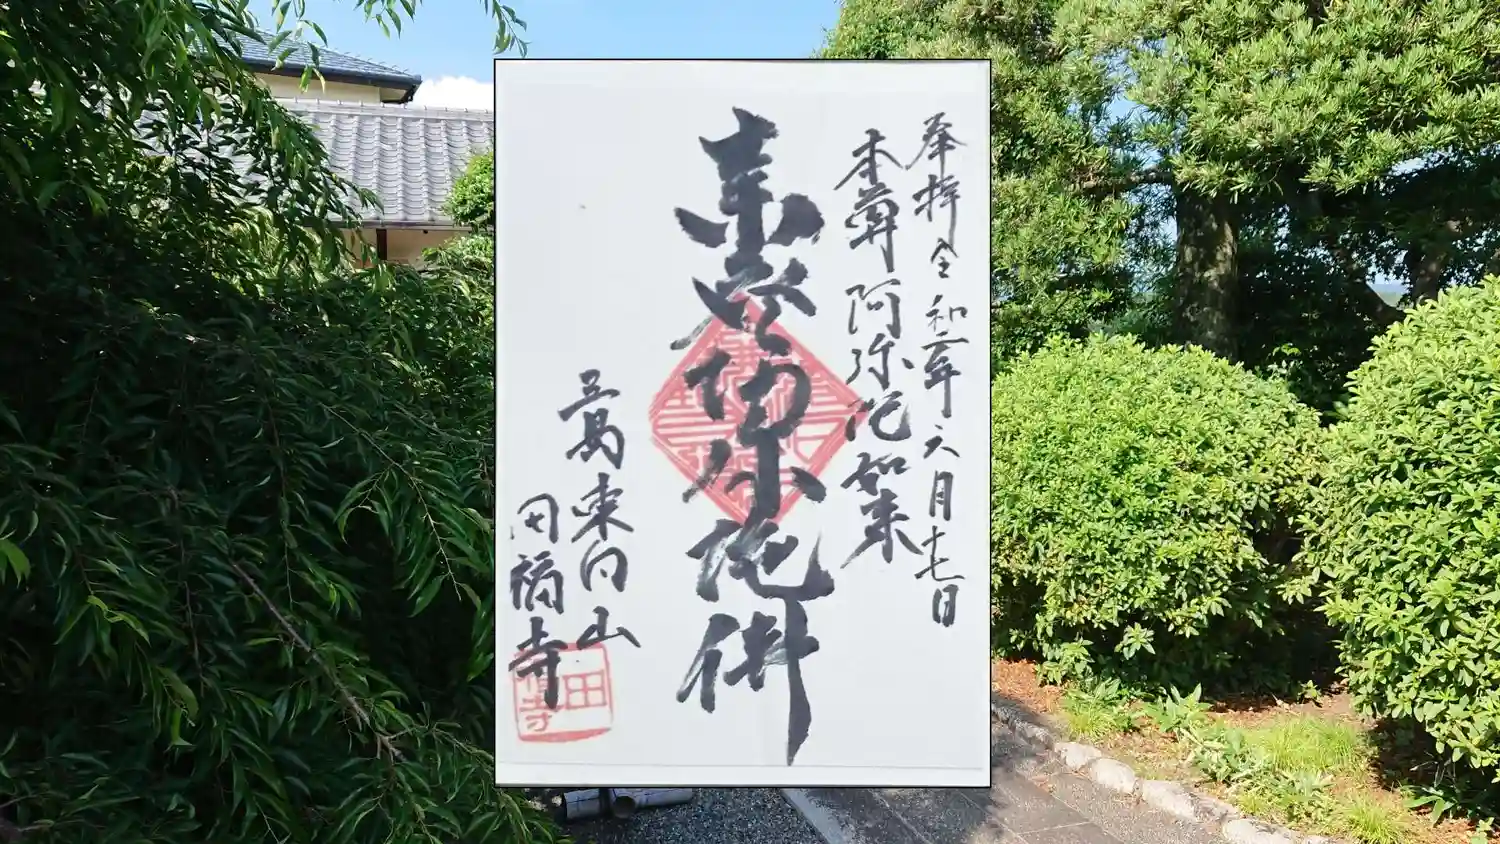 奉拝 令和二年六月十七日
本尊 阿弥陀如来
南無阿弥陀佛
三島 東向山
田福寺